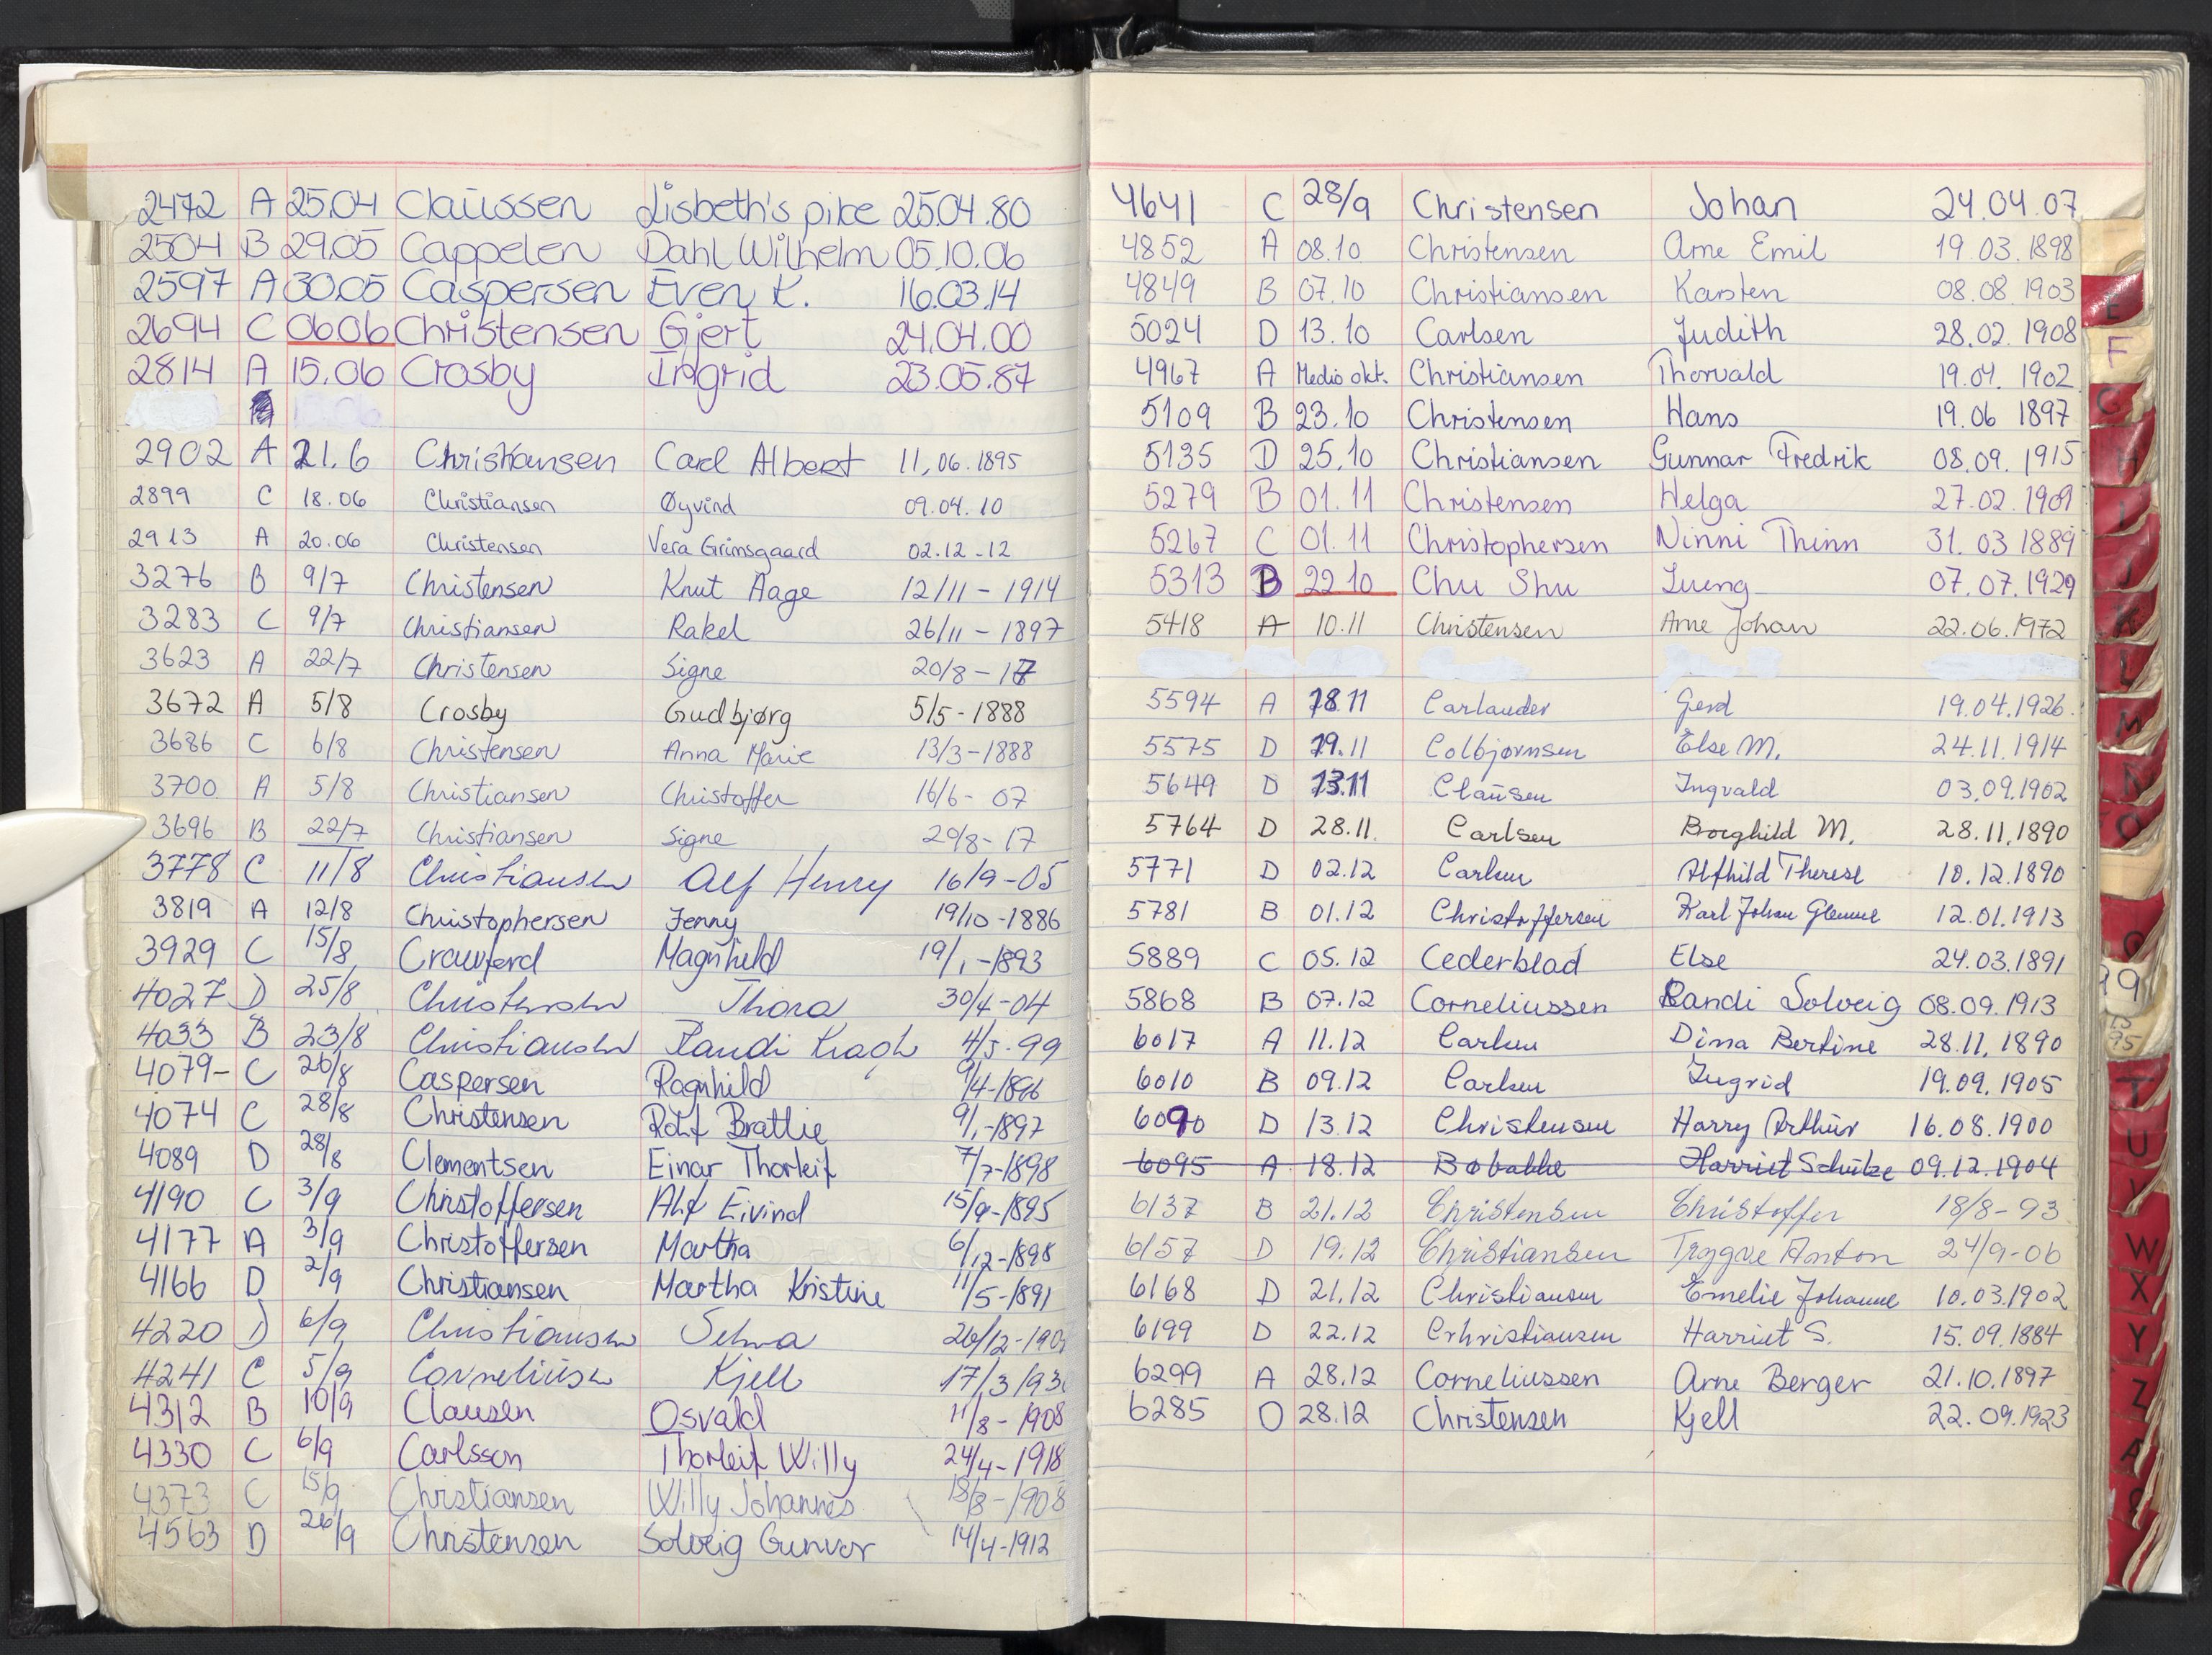 2472 A 25.04 Claussen Lisbeth's pike 25.04.80
2504 B 29.05 Cappelen Dahl Wilhelm 05.10.06
2597 A 30.05 Caspersen Even K. 16.03.14
2694 C 06.06 Christensen Gjert 24.04.00
2814 A 15.06 Crosby Ingrid 23.05.87
2902 A 21.6 Christiansen Carl Albert 11.06.1895
2899 C 18.06 Christiansen Øyvind 09.04.10
2913 A 20.06 Christensen Vera Grimsgaard 02.12.12
3276 B 9/7 Christensen Knut Aage 12/11-1914
3283 C 9/7 Christiansen Rakel 26/11-1897
3623 A 22/7 Christensen Signe 20/8-17
3672 A 5/8 Crosby Gudbjørg 5/5-1888
3686 C 6/8 Christensen Anna Marie 13/3-1888
3700 A 5/8 Christiansen Christoffer 16/6-07
3696 B 22/7 Christiansen Signe 29/8-17
3778 C 11/8 Christiansen Alf Henry 16/9-05
3819 A 12/8 Christophersen Jenny 19/10-1886
3929 C 15/8 Crawferd Magnhild 19/1-1893
4027 D 25/8 Christensen Thora 30/4-04
4033 B 23/8 Christiansen Randi Kragh 4/5-99
4079- C 26/8 Caspersen Ragnhild 9/4-1896
4074 C 28/8 Christensen Rolf Brattlie 9/1-1897
4089 D 28/8 Clementsen Einar Thorleif 7/7-1898
4190 C 3/9 Christoffersen Alf Eivind 15/9-1895
4177 A 3/9 Christoffersen Martha 6/12-1898
4166 D 2/9 Christiansen Martha Kristine 11/5-1891
4220 D 6/9 Christiansen Selma
4241 C 5/9 Corneliusen Kjell
4312 B 10/9 Clausen Osvald 11/8-1908
4330 C 6/9 Carlsson Thorleif Willy 24/4-1918
4373 C 15/9 Christiansen Willy Johannes 18/8-1908
4563 D 26/9 Christensen Solveig Gunvor 14/4-1912
4641 C 28/9 Christensen Johan 24.04.07
4852 A 08.10 Christensen Arne Emil 19.03.1898
4849 B 07.10 Christiansen Karsten 08.08.1903
5024 D 13.10 Carlsen Judith 28.02.1908
4967 A Medio okt. Christiansen Thorvald 19.04.1902
5109 B 23.10 Christensen Hans 19.06 1897
5135 D 25.10 Christiansen Gunnar Fredrik 08.09.1915
5279 B 01.11 Christensen Helga 27.02.1909
5267 C 01.11 Christophersen Ninni Thinn 31.03 1889
5313 B 22.10 Chu Shu Jueng 07.07.1929
5418 A 10.11 Christensen Arne Johan 22.06.1972
5594 A 18.11 Carlander Gerd 19.04.1926
5575 D 19.11 Colbjørnsen Else M. 24.11.1914
5649 D 13.11 Clausen Ingvald 03.09.1902
5764 D 28.11. Carlsen Borghild M. 28.11.1890
5771 D 02.12 Carlsen Alfhild Therese 10.12.1890
5781 B 01.12 Christoffersen Karl Johan 12.01.1913
5889 C 05.12 Cederblad Else 24.03.1891
5868 B 07.12 Corneliussen Randi Solveig 08.09.1913
6017 A 11.12 Carlsen Dina Bertine 28.11.1890
6010 B 09.12 Carlsen Ingrid 19.09.1905
6090 D 13.12 Christensen Harry Arthur 16.08.1900
6095 A 18.12 Harriet Schulze 09.12.1904
6137 B 21.12 Christensen Christoffer 18/8-93
6157 D 19.12 Christiansen Trygve Anton 24/9-06
6168 D 21.12 Christiansen Emelie Johanne 10.03.1902
6199 D 22.12 Crhristiansen Harriet S. 15.09.1884
6299 A 28.12 Corneliussen Arne Berger 21.10.1897
6285 D 28.12 Christensen Kjell 22.09.1923
E
F
G
H
I
J
K
L
M
N
O
T
U
V
W
X
Y
Z